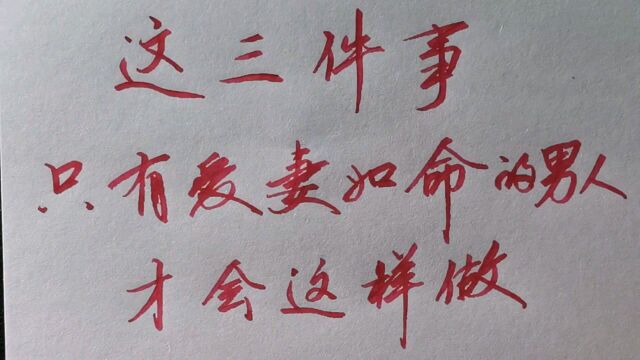 这三件事
只有爱妻如命的男人
才会这样做